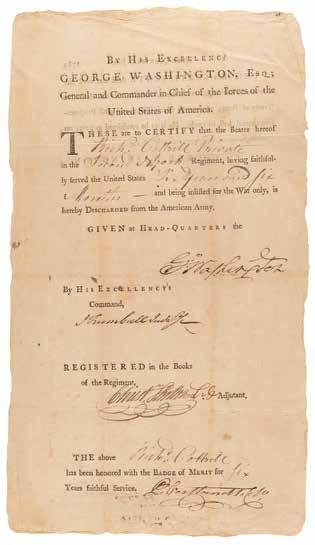 BY HIS EXCELLENCY
GEORGE WASHINGTON, ESQ;
General and Commander in Chief of the Forces of the
United States of America.
THESE are to CERTIFY that the Bearer hereof
Cottrill Private
in the Regiment, having faithful-
ly served the United States Six Years and six
Months and being inlisted for the War only, is
hereby DISCHARGED from the American Army.
GIVEN at HEAD-QUARTERS the
Go Washington
By HIS EXCELLENCY'S
Command,
J Trumbull Jun Sy
REGISTERED in the Books
of the Regiment,
Adjutant,
THE above Cottrill
has been honored with the BADGE of MERIT for six
Years faithful Service.